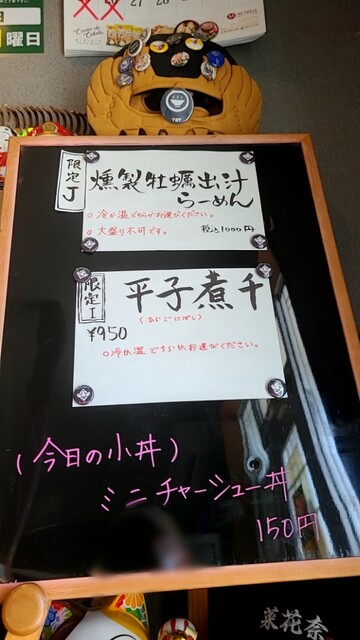 曜日
21
28
限定J
燻製牡蠣出汁
らーめん
○冷か温どちらかお選びください。
○大盛り不可です。
税込1000円
限定I
平子煮干
¥950
○冷か温どちらかお選びください。
(今日の小丼)
ミニチャーシュー丼
150円
菜花奈